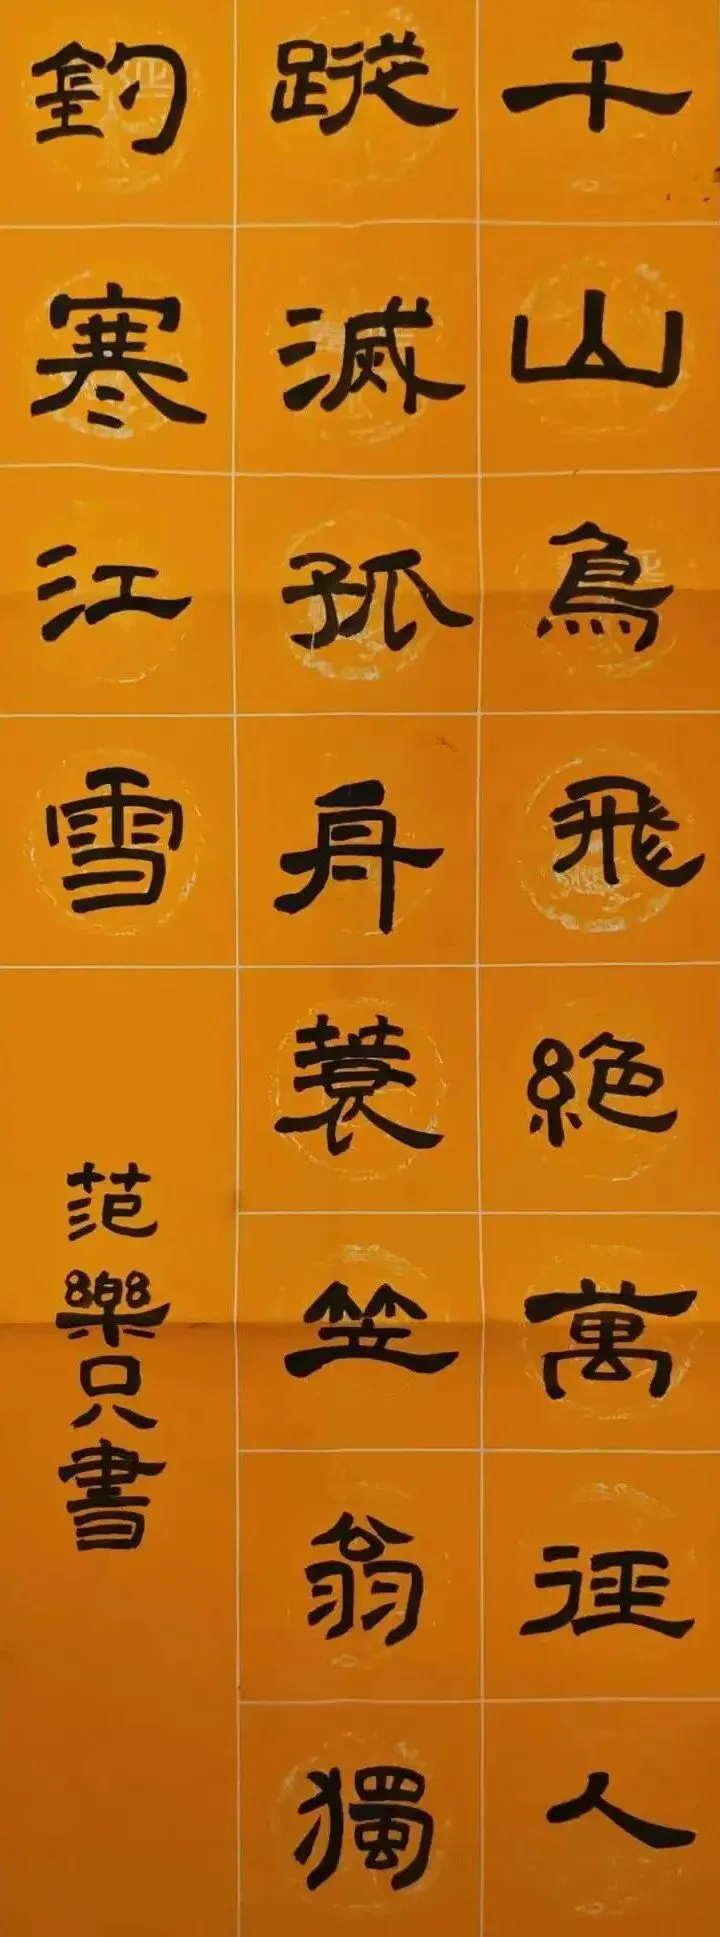 千山鳥飛絶萬徑人
蹤滅孤舟蓑笠翁獨
釣寒江雪
范樂只書